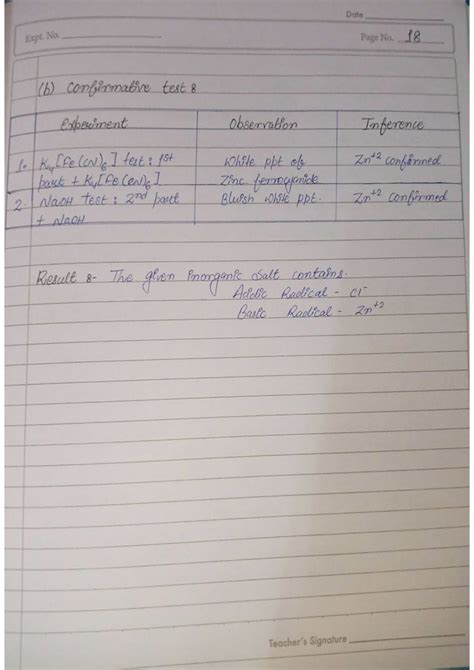 Date
Expt. No.
Page No. 18
(b) Confirmative test :
Experiment Observation Inference
1. K4[Fe(CN)6] test : 1st White ppt of Zn+2 confirmed
part + K4[Fe(CN)6] Zinc ferrocyanide
2. NaOH test : 2nd part Bluish white ppt. Zn+2 confirmed
+ NaOH
Result :- The given inorganic salt contains.
Acidic Radical - Cl-
Basic Radical - Zn+2
Teacher's Signature